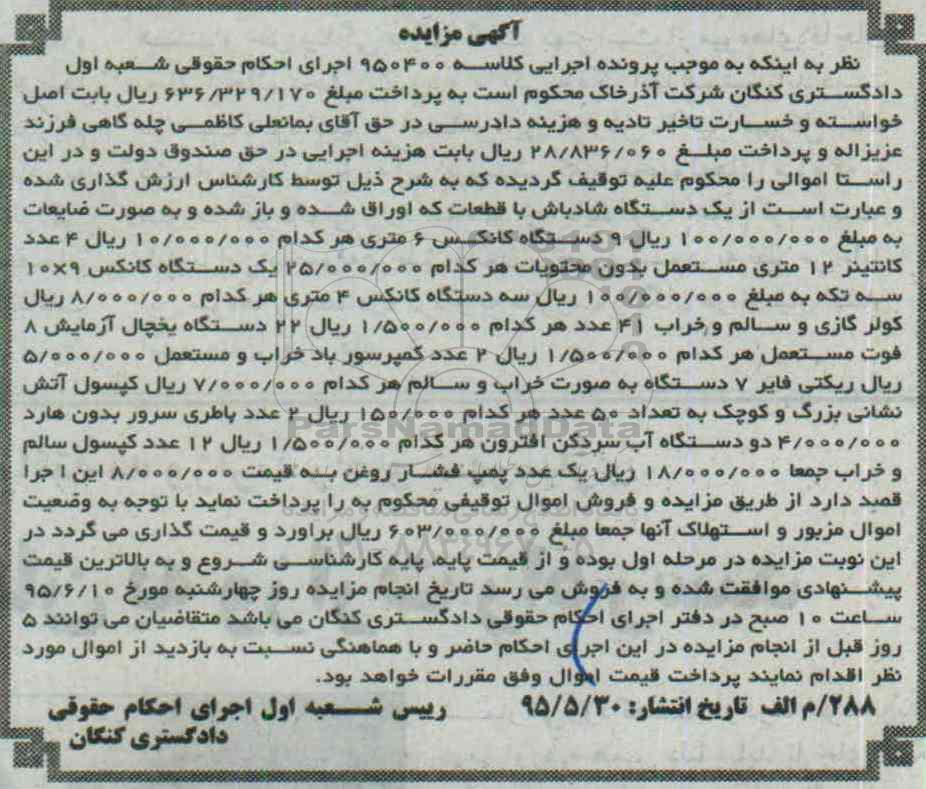 آگهی مزایده
نظر به اینکه به موجب پرونده اجرایی کلاسه ۹۵۰۴۰۰ اجرای احکام حقوقی شعبه اول
دادگستری کنگان شرکت آذرخاک محکوم است به پرداخت مبلغ ۶۳۶/۳۲۹/۱۷۰ ریال بابت اصل
خواسته و خسارت تاخیر تادیه و هزینه دادرسی در حق آقای بمانعلی کاظمی چله گاهی فرزند
عزیزاله و پرداخت مبلغ ۲۸/۸۳۶/۰۶۰ ریال بابت هزینه اجرایی در حق صندوق دولت و در این
راستا اموالی را محکوم علیه توقیف گردیده که به شرح ذیل توسط کارشناس ارزش گذاری شده
و عبارت است از یک دستگاه شادباش با قطعات که اوراق شده و باز شده و به صورت ضایعات
به مبلغ ۱۰۰/۰۰۰/۰۰۰ ریال ۹ دستگاه کانکس ۶ متری هر کدام ۱۰/۰۰۰/۰۰۰ ریال ۴ عدد
کانتینر ۱۲ متری مستعمل بدون محتویات هر کدام ۲۵/۰۰۰/۰۰۰ یک دستگاه کانکس ۹×۱۰
سه تکه به مبلغ ۱۰۰/۰۰۰/۰۰۰ ریال سه دستگاه کانکس ۴ متری هر کدام ۸/۰۰۰/۰۰۰ ریال
کولر گازی و سالم و خراب ۴۱ عدد هر کدام ۱/۵۰۰/۰۰۰ ریال ۲۲ دستگاه یخچال آزمایش ۸
فوت مستعمل هر کدام ۱/۵۰۰/۰۰۰ ریال ۲ عدد کمپرسور باد خراب و مستعمل ۵/۰۰۰/۰۰۰
ریال ریکتی فایر ۷ دستگاه به صورت خراب و سالم هر کدام ۷/۰۰۰/۰۰۰ ریال کپسول آتش
نشانی بزرگ و کوچک به تعداد ۵۰ عدد هر کدام ۱۵۰/۰۰۰ ریال ۲ عدد باطری سرور بدون هارد
۴/۰۰۰/۰۰۰ دو دستگاه آب سردکن افترون هر کدام ۱/۵۰۰/۰۰۰ ریال ۱۲ عدد کپسول سالم
و خراب جمعا ۱۸/۰۰۰/۰۰۰ ریال یک عدد پمپ فشار روغن به قیمت ۸/۰۰۰/۰۰۰ این ا جرا
قصد دارد از طریق مزایده و فروش اموال توقیفی محکوم به را پرداخت نماید با توجه به وضعیت
اموال مزبور و استهلاک آنها جمعا مبلغ ۶۰۳/۰۰۰/۰۰۰ ریال براورد و قیمت گذاری می گردد در
این نوبت مزایده در مرحله اول بوده و از قیمت پایه، پایه کارشناسی شروع و به بالاترین قیمت
پیشنهادی موافقت شده و به فروش می رسد تاریخ انجام مزایده روز چهارشنبه مورخ ۹۵/۶/۱۰
ساعت ۱۰ صبح در دفتر اجرای احکام حقوقی دادگستری کنگان می باشد متقاضیان می توانند ۵
روز قبل از انجام مزایده در این اجرای احکام حاضر و با هماهنگی نسبت به بازدید از اموال مورد
نظر اقدام نمایند پرداخت قیمت اموال وفق مقررات خواهد بود.
۲۸۸/م الف تاریخ انتشار: ۹۵/۵/۳۰ رییس شعبه اول اجرای احکام حقوقی
دادگستری کنگان
ParsNamadData